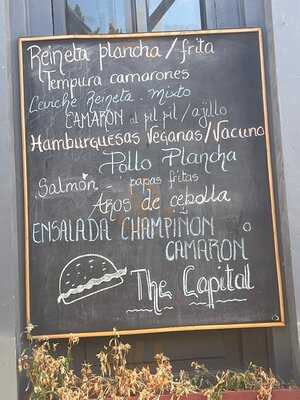 Reineta plancha/frita
Tempura camarones
Ceviche Reineta. Mixto
CAMARON al pil pil/ajillo
Hamburguesas Veganas/Vacuno
Pollo Plancha
Salmón - papas fritas
Aros de cebolla
ENSALADA CHAMPIÑON
CAMARON
The Capital